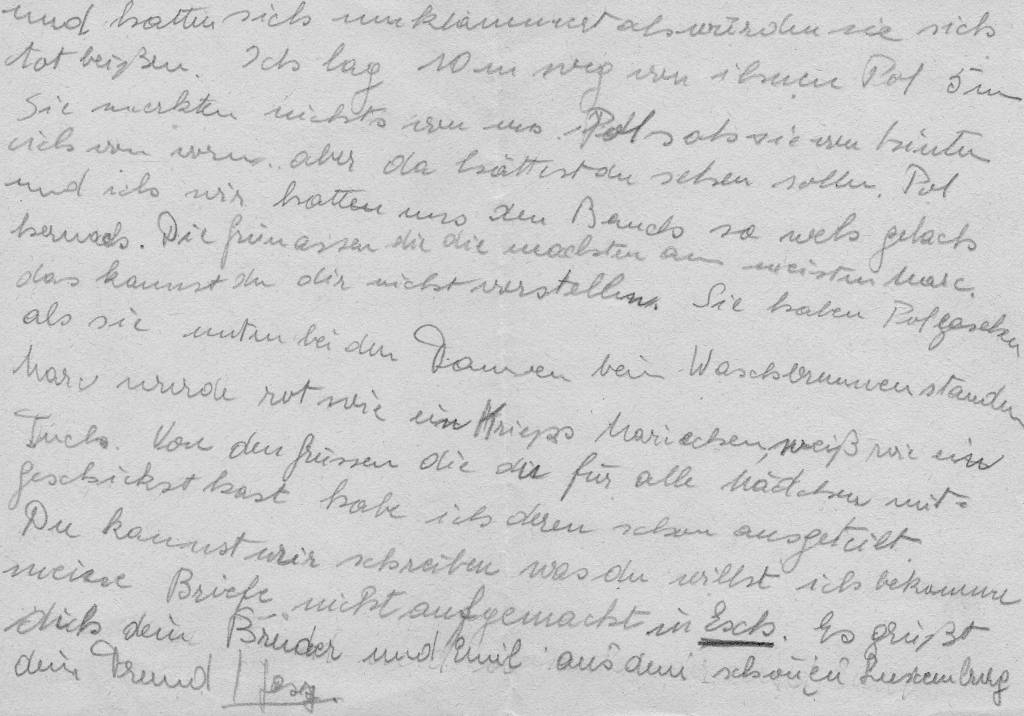 und hatten sich umklammert als würden sie sich
tot beißen. Ich lag 10 m weg von ihnen Pol 5 m
Sie merkten nichts von uns. Pol sah sie von hinten
ich von vorn. aber da hättest du sehen sollen. Pol
und ich wir hatten uns den Bauch so weh gelach
hernach. Die Grimassen die die machten am meisten Marc.
das kannst du dir nicht vorstellen. Sie haben Pol gesehen
als sie unten bei den Damen beim Waschbrunnen standen
Marc wurde rot wie ein Krieps Mariechen weiß wie ein
Tuch. Von den Grüssen die du für alle Mädchen mit-
geschickst hast habe ich deren schon ausgeteilt.
Du kannst mir schreiben was du willst ich bekomme
meine Briefe nicht aufgemacht in Esch. Es grüßt
dich dein Bruder und Emil aus dem schönen Luxemburg
dein Freund